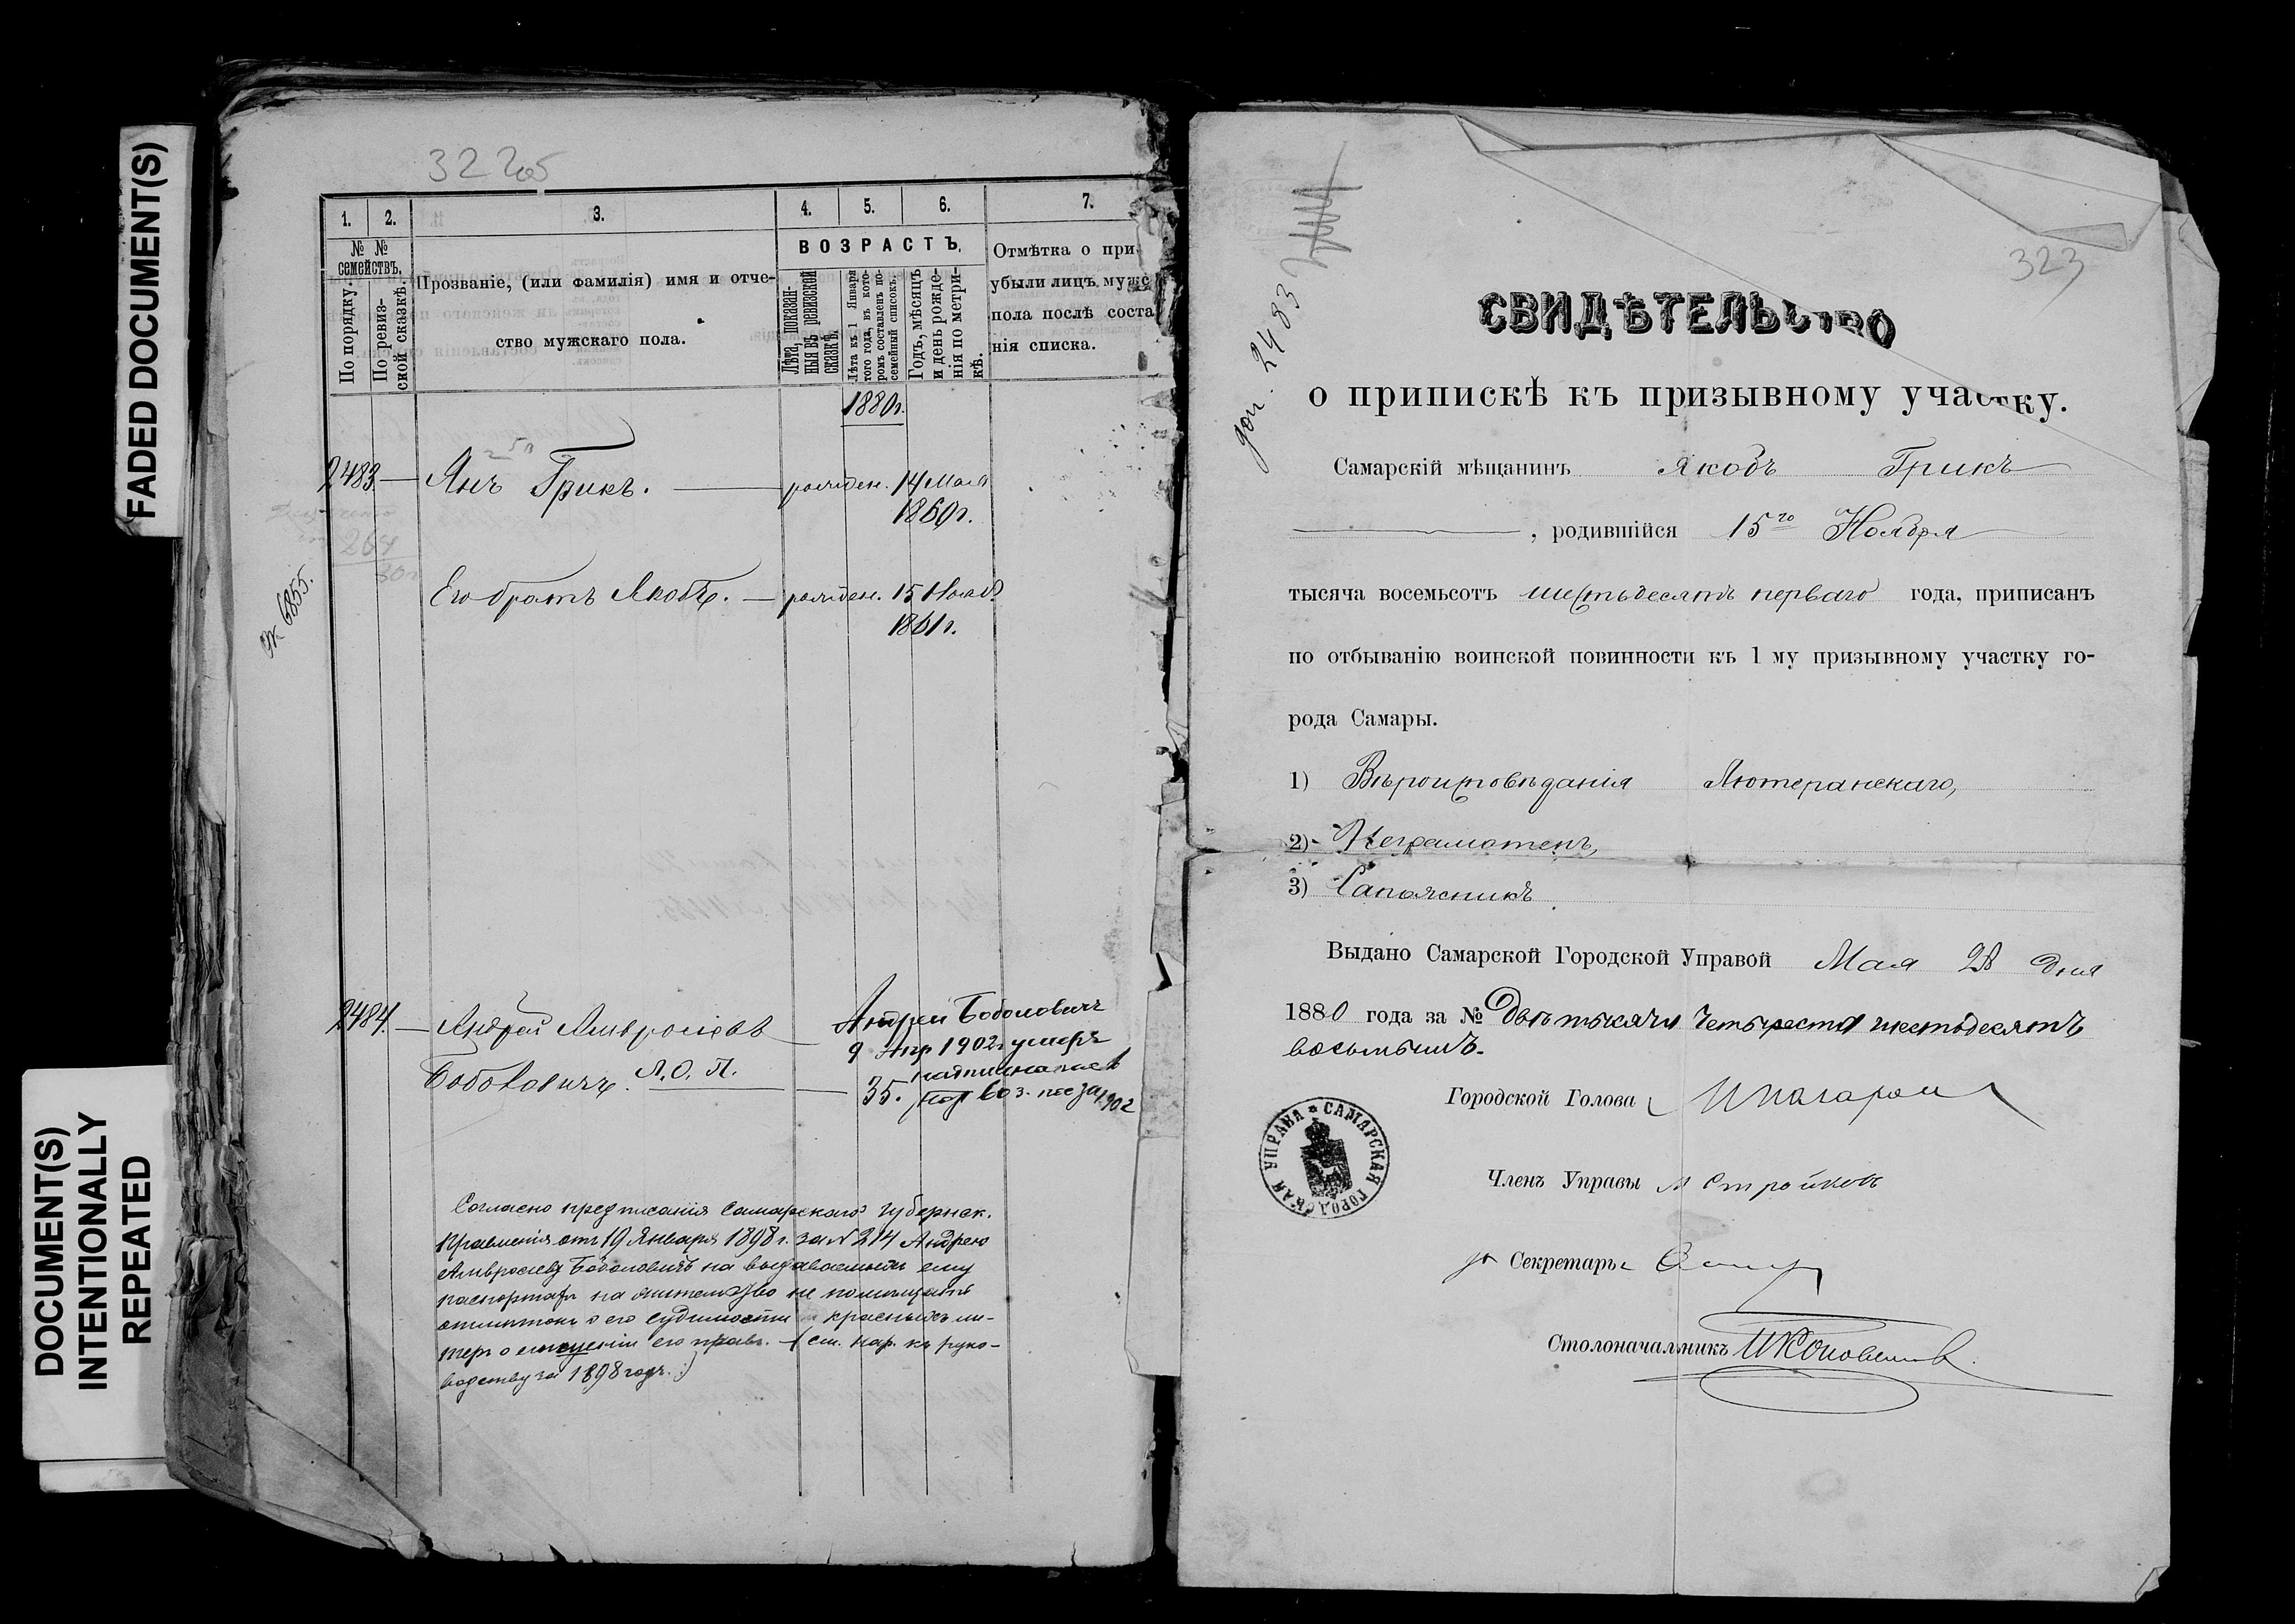 FADED DOCUMENT(S)
DOCUMENT(S)
INTENTIONALLY
REPEATED
322 об
1.
2.
3.
4.
5.
6.
7.
№ №
семействъ.
По порядку.
По ревиз-
ской сказкѣ.
Прозваніе, (или фамилія) имя и отче-
ство мужскаго пола.
ВОЗРАСТЪ.
Лѣта, показан-
ныя въ ревизской
сказкѣ.
Лѣта къ 1 Января
того года, въ кото-
ромъ составленъ по-
семейный списокъ.
Годъ, мѣсяцъ
и день рожде-
нія по метри-
кѣ.
Отмѣтка о при-
убыли лицъ мужс
пола послѣ соста
нія списка.
1880г.
2483 Янъ Грикъ. рожден. 14 Мая
1860г.
264
6855.
Его братъ Якобъ. рожден. 15 Нояб.
1861г.
2484. Андрей Амвросіевъ
Боболовичъ. Л.О.П. 35.
Андрей Боболовичъ
9 Апр 1902г умеръ
1902
Согласно предписанія Самарскаго Губернск.
Правленія отъ 19 Января 1898 г. за № 214 Андрею
Амвросіеву Боболовичъ на выдаваемыхъ ему
паспортахъ на жительство не помѣщать
отмѣтокъ о его судимости и красныхъ ли-
теръ о его правъ. (см. нар. къ руко-
водству за 1898 годъ.)
доп. 2483
323
СВИДѢТЕЛЬСТВО
о припискѣ къ призывному участку.
Самарскій мѣщанинъ Якобъ Грикъ
, родившійся 15го Ноября
тысяча восемьсотъ шестьдесятъ перваго года, приписанъ
по отбыванію воинской повинности къ 1 му призывному участку го-
рода Самары.
1) Вѣроисповѣданія Лютеранскаго,
2) Неграмотенъ,
3) Сапожникъ.
Выдано Самарской Городской Управой Мая 28 дня
1880 года за № Двѣ тысячи четыреста шестьдесятъ
восьмымъ.
Городской Голова
САМАРСКАЯ ГОРОДСКАЯ УПРАВА
Членъ Управы
Секретарь
Столоначальникъ